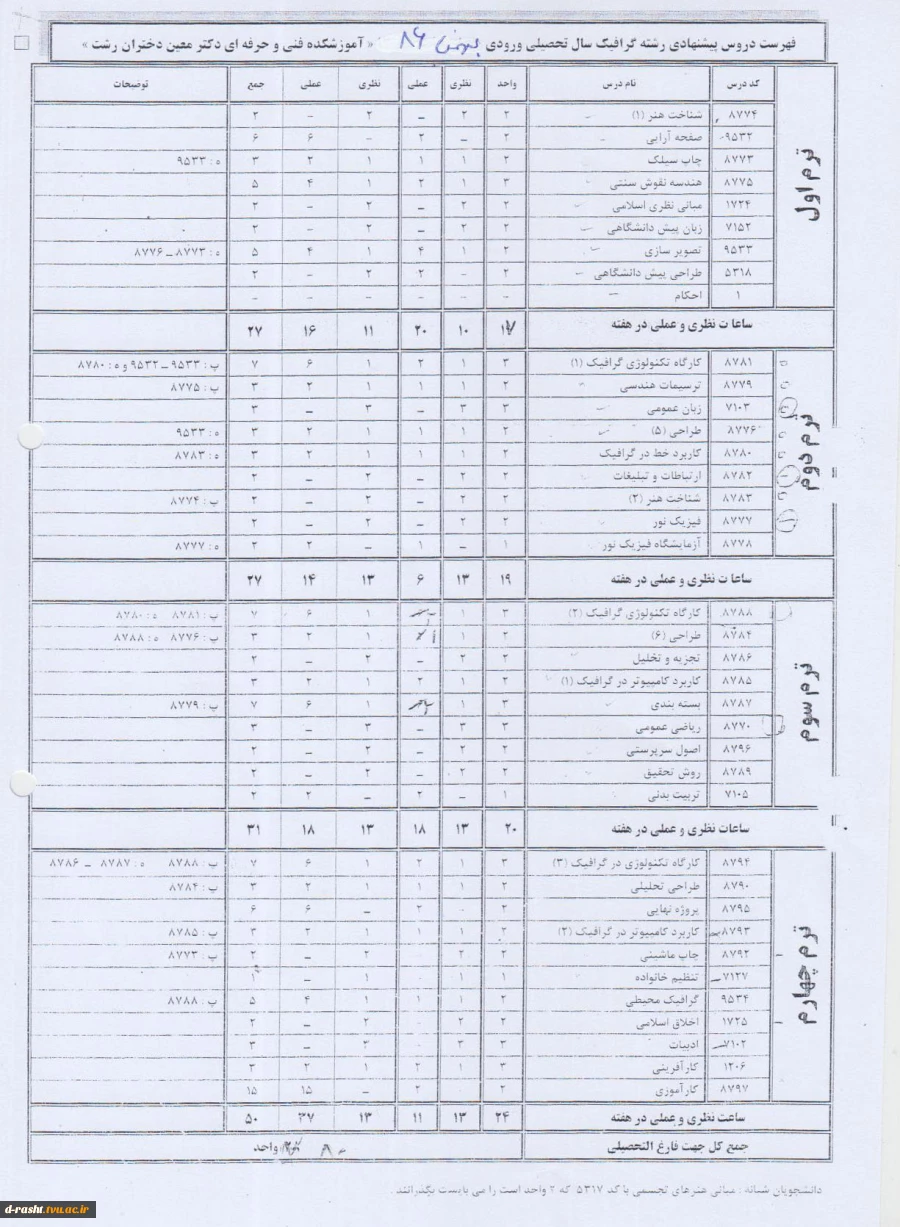 فهرست دروس پیشنهادی رشته گرافیک سال تحصیلی ورودی بهمن ۸۶ « آموزشکده فنی و حرفه ای دکتر معین دختران رشت »
کد درس نام درس واحد نظری عملی نظری عملی جمع توضیحات
ترم اول
۸۷۷۴ شناخت هنر (۱) ۲ ۲ – ۲ – ۲
۹۵۳۲ صفحه آرایی ۲ – ۲ – ۶ ۶
۸۷۷۳ چاپ سیلک ۲ ۱ ۱ ۱ ۲ ۳ ه : ۹۵۳۳
۸۷۷۵ هندسه نقوش سنتی ۳ ۱ ۲ ۱ ۴ ۵
۱۷۲۴ مبانی نظری اسلامی ۲ ۲ – ۲ – ۲
۷۱۵۲ زبان پیش دانشگاهی ۲ ۲ – ۲ – ۲
۹۵۳۳ تصویر سازی ۲ ۱ ۴ ۱ ۴ ۵ ه : ۸۷۷۳ – ۸۷۷۶
۵۳۱۸ طراحی پیش دانشگاهی ۲ – ۲ ۲ – ۲
۱ احکام – – – – – –
ساعات نظری و عملی در هفته ۱۷ ۱۰ ۲۰ ۱۱ ۱۶ ۲۷
ترم دوم
۸۷۸۱ کارگاه تکنولوژی گرافیک (۱) ۳ ۱ ۲ ۱ ۶ ۷ پ : ۹۵۳۳ – ۹۵۳۲ و ه : ۸۷۸۰
۸۷۷۹ ترسیمات هندسی ۲ ۱ ۱ ۱ ۲ ۳ پ : ۸۷۷۵
۷۱۰۳ زبان عمومی ۳ ۳ – ۳ – ۳
۸۷۷۶ طراحی (۵) ۲ ۱ ۱ ۱ ۲ ۳ ه : ۹۵۳۳
۸۷۸۰ کاربرد خط در گرافیک ۲ ۱ ۱ ۱ ۲ ۳ ه : ۸۷۸۳
۸۷۸۲ ارتباطات و تبلیغات ۲ ۲ – ۲ – ۲
۸۷۸۳ شناخت هنر (۲) ۲ ۲ – ۲ – ۲ پ : ۸۷۷۴
۸۷۷۷ فیزیک نور ۲ ۲ – ۲ – ۲
۸۷۷۸ آزمایشگاه فیزیک نور ۱ – ۱ – ۲ ۲ ه : ۸۷۷۷
ساعات نظری و عملی در هفته ۱۹ ۱۳ ۶ ۱۳ ۱۴ ۲۷
ترم سوم
۸۷۸۸ کارگاه تکنولوژی گرافیک (۲) ۳ ۱ ۱ ۶ ۷ پ : ۸۷۸۱ ه : ۸۷۸۰
۸۷۸۴ طراحی (۶) ۲ ۱ ۱ ۱ ۲ ۳ پ : ۸۷۷۶ ه : ۸۷۸۸
۸۷۸۶ تجزیه و تحلیل ۲ ۲ – ۲ – ۲
۸۷۸۵ کاربرد کامپیوتر در گرافیک (۱) ۲ ۱ ۲ ۱ ۲ ۳
۸۷۸۷ بسته بندی ۳ ۱ ۱ ۶ ۷ پ : ۸۷۷۹
۸۷۷۰ ریاضی عمومی ۳ ۳ – ۳ – ۳
۸۷۹۶ اصول سرپرستی ۲ ۲ – ۲ – ۲
۸۷۸۹ روش تحقیق ۲ ۲ – ۲ – ۲
۷۱۰۵ تربیت بدنی ۱ – ۲ – ۲ ۲
ساعات نظری و عملی در هفته ۲۰ ۱۳ ۱۸ ۱۳ ۱۸ ۳۱
ترم چهارم
۸۷۹۴ کارگاه تکنولوژی در گرافیک (۳) ۳ ۱ ۲ ۱ ۶ ۷ پ : ۸۷۸۸ ه : ۸۷۸۷ – ۸۷۸۶
۸۷۹۰ طراحی تحلیلی ۲ ۱ ۱ ۱ ۲ ۳ پ : ۸۷۸۴
۸۷۹۵ پروژه نهایی ۲ – ۲ – ۶ ۶
۸۷۹۳ کاربرد کامپیوتر در گرافیک (۲) ۲ ۱ ۱ ۱ ۲ ۳ پ : ۸۷۸۵
۸۷۹۲ چاپ ماشینی ۲ ۲ – ۲ – ۲ پ : ۸۷۷۳
۷۱۲۷ تنظیم خانواده ۱ ۱ – ۱ – ۱
۹۵۳۴ گرافیک محیطی ۲ ۱ ۱ ۱ ۴ ۵ پ : ۸۷۸۸
۱۷۲۵ اخلاق اسلامی ۲ ۲ – ۲ – ۲
۷۱۰۲ ادبیات ۳ ۳ – ۳ – ۳
۱۲۰۶ کارآفرینی ۳ ۱ ۲ ۱ ۲ ۳
۸۷۹۷ کارآموزی ۲ ۲ – ۱۵ ۱۵
ساعت نظری و عملی در هفته ۲۴ ۱۳ ۱۱ ۱۳ ۳۷ ۵۰
جمع کل جهت فارغ التحصیلی ۸۰ واحد
دانشجویان شبانه : مبانی هنرهای تجسمی با کد ۵۳۱۷ که ۲ واحد است را می بایست بگذرانند .
d-rasht.tvu.ac.ir